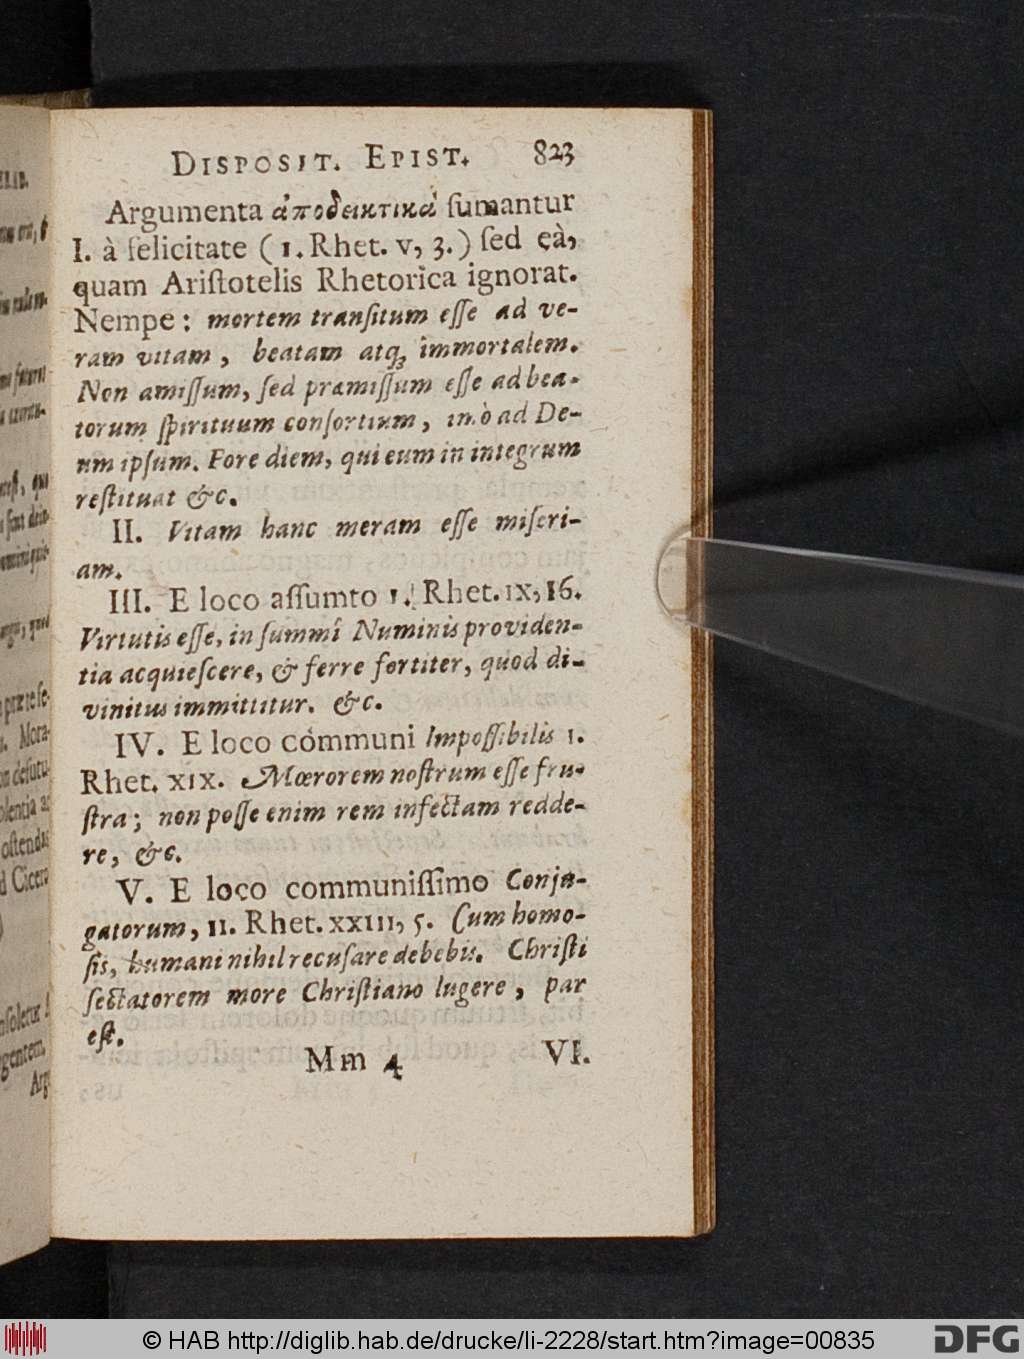 DISPOSIT. EPIST. 823
Argumenta ἀποδεικτικὰ sumantur
I. à felicitate (1. Rhet. v, 3.) sed eâ,
quam Aristotelis Rhetorica ignorat.
Nempe: mortem transitum esse ad ve-
ram vitam, beatam atq; immortalem.
Non amissum, sed præmissum esse ad bea-
torum spirituum consortium, imò ad De-
um ipsum. Fore diem, qui eum in integrum
restituat &c.
II. Vitam hanc meram esse miseri-
am.
III. E loco assumto 1. Rhet. IX, 16.
Virtutis esse, in summi Numinis providen-
tia acquiescere, & ferre fortiter, quod di-
vinitus immittitur. &c.
IV. E loco communi Impossibilis 1.
Rhet. XIX. Mœrorem nostrum esse fru-
stra; non posse enim rem infectam redde-
re, &c.
V. E loco communissimo Conju-
gatorum, II. Rhet. XXIII, 5. Cum homo
sis, humani nihil recusare debebis. Christi
sectatorem more Christiano lugere, par
est.
Mm 4 VI.
© HAB http://diglib.hab.de/drucke/li-2228/start.htm?image=00835
DFG